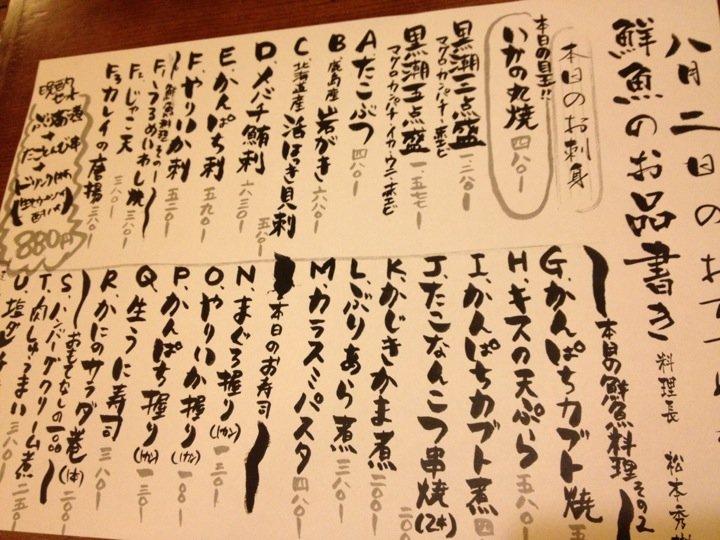 八月二日のお
鮮魚のお品書き
料理長 松本秀
本日のお刺身
本日の目玉!!
いかの丸焼 四八〇-
黒潮三点盛 一、二八〇-
マグロ・カンパチ・ホエビ
黒潮五点盛 一、五七〇-
マグロ・カンパチ・イカ・ウニ・ホエビ
A、たこぶつ 四八〇-
B、鹿島産 岩がき 六八〇-
C、北海道産 活ほっき貝刺
D、メバチ鮪刺 六三〇-
E、かんぱち刺 五九〇-
F、やりいか刺 五二〇-
鮮魚料理その一
F1、うるめいわし焼 三八〇-
F2、じゃこ天 三八〇-
F3、カレイの唐揚 三八〇-
880円
本日の鮮魚料理その2
G、かんぱちカブト焼
H、キスの天ぷら 五八〇-
I、かんぱちカブト煮 四
J、たこなんこつ串焼(2本)
K、かじきかま煮
L、ぶりあら煮 三八〇-
M、カラスミパスタ 四八〇-
本日のお寿司
N、まぐろ握り(1カン) 一三〇-
O、やりいか握り(1カン) 一〇〇-
P、かんぱち握り(1カン) 一三〇-
Q、生うに寿司
R、かにのサラダ巻(1本) 四八〇-
おもてなしの一品
S、ハンバーグクリーム煮 五八〇-
T、肉しゅうまい 三八〇-
U、塩ダレ